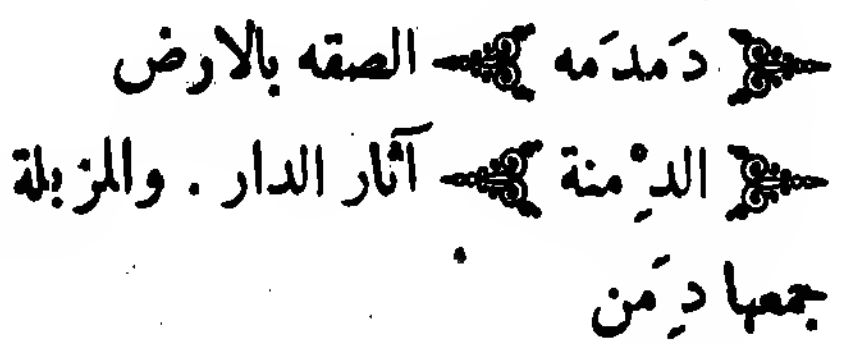 ﴿ دَمدَمه ﴾ الصقه بالارض
﴿ الدِمْنة ﴾ آثار الدار . والمزبلة
جمعها دِمَن